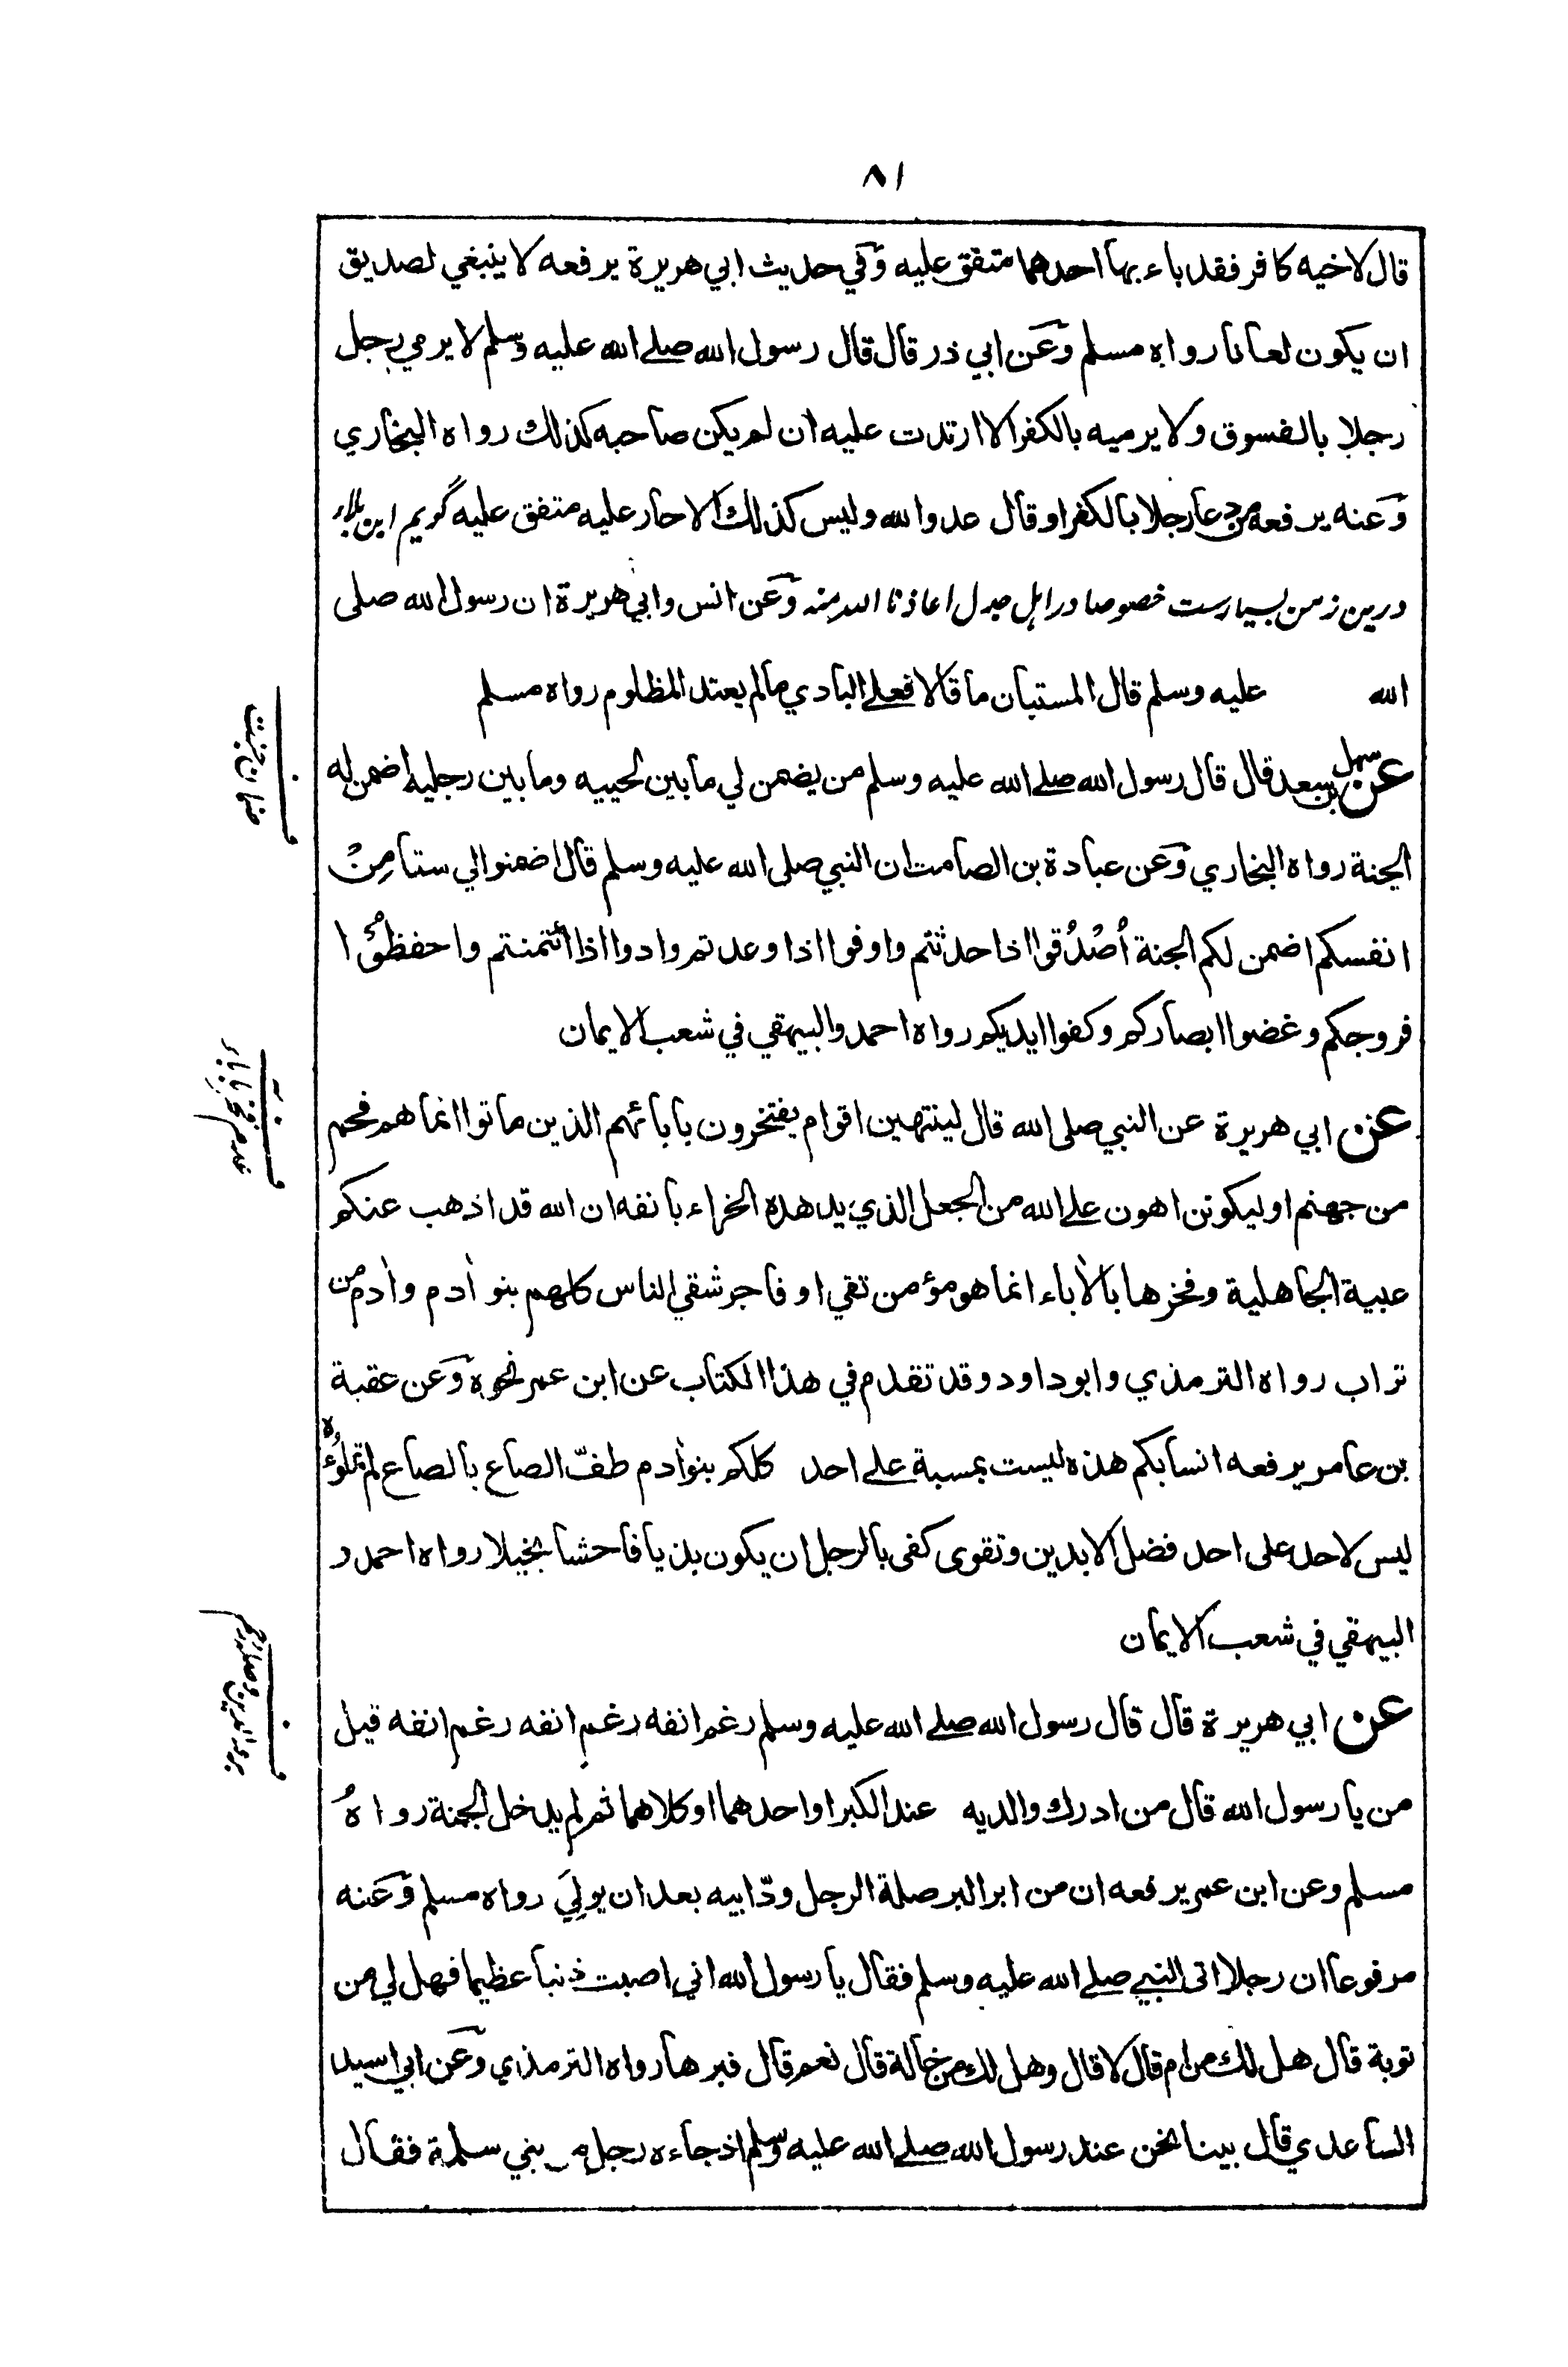 ٨١
قال لاخيه كافر فقد باء بها احدهما متفق عليه وفي حديث ابي هريرة يرفعه لا ينبغي لصديق
ان يكون لعانا رواه مسلم وعن ابي ذر قال قال رسول الله صلے الله عليه وسلم لا يرمي رجل
رجلا بالفسوق ولا يرميه بالكفر الا ارتدت عليه ان لم يكن صاحبه كذلك رواه البخاري
وعنه يرفعه من دعا رجلا بالكفر او قال عدو الله وليس كذلك الا حار عليه متفق عليه گويم اين بلاء
درين زمن بسيارست خصوصا در اہل جدل اعاذنا الله منه وعن انس وابي هريرة ان رسول الله صلى
الله عليه وسلم قال المستبان ما قالا فعلے البادي ما لم يعتد المظلوم رواه مسلم
عن سهل بن سعد قال قال رسول الله صلے الله عليه وسلم من يضمن لي ما بين لحييه وما بين رجليه اضمن له
الجنة رواه البخاري وعن عبادة بن الصامت ان النبي صلى الله عليه وسلم قال اضمنوا لي ستا مِنْ
انفسكم اضمن لكم الجنة اُصْدُقوا اذا حدثتم واوفوا اذا وعدتم وادوا اذا ائتمنتم واحفظوُا
فروجكم وغضوا ابصاركم وكفوا ايديكم رواه احمد والبيهقي في شعب الايمان
عن ابي هريرة عن النبي صلى الله قال لينتهين اقوام يفتخرون بابائهم الذين ماتوا انما هم فحم
من جهنم او ليكونن اهون علے الله من الجعل الذي يدهده الخراء بانفه ان الله قد اذهب عنكم
عبية الجاهلية وفخرها بالاٰباء انما هو مؤمن تقي او فاجر شقي الناس كلهم بنو اٰدم واٰدم من
تراب رواه الترمذي وابو داود وقد تقدم في هذا الكتاب عن ابن عمر نحوه وعن عقبة
بن عامر يرفعه انسابكم هذه ليست بمسبة علے احد كلكم بنو اٰدم طفّ الصاع بالصاع لم تملؤُه
ليس لاحد على احد فضل الا بدين وتقوى كفى بالرجل ان يكون بذيا فاحشا بخيلا رواه احمد و
البيهقي في شعب الايمان
عن ابي هريرة قال قال رسول الله صلے الله عليه وسلم رغم انفه رغم انفه رغم انفه قيل
من يا رسول الله قال من ادرك والديه عند الكبر او احدهما او كلاهما ثم لم يدخل الجنة رواهُ
مسلم وعن ابن عمر يرفعه ان من ابر البر صلة الرجل ودّ ابيه بعد ان يولِيَ رواه مسلم وعنه
مرفوعا ان رجلا اتى النبي صلے الله عليه وسلم فقال يا رسول الله اني اصبت ذنبا عظيما فهل لي من
توبة قال هل لك من ام قال لا قال وهل لك من خالة قال نعم قال فبرها رواه الترمذي وعن ابي اسيد
الساعدي قال بينا نحن عند رسول الله صلے الله عليه وسلم اذ جاءه رجل من بني سلمة فقال
ضمان جنت